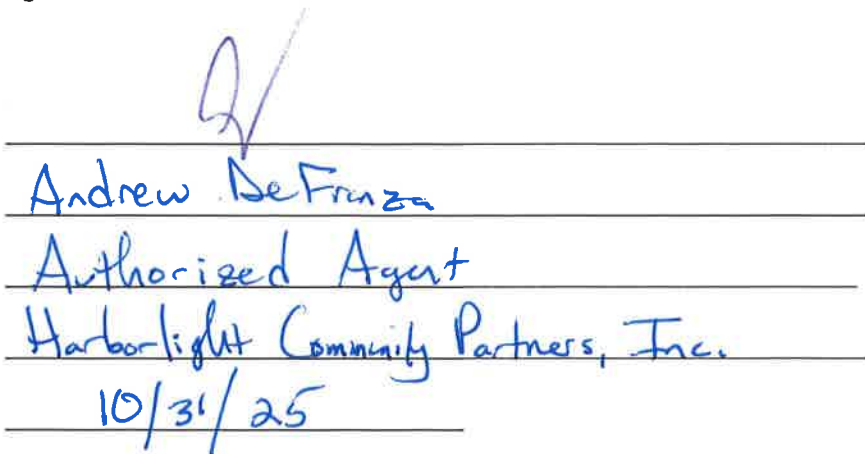 Andrew DeFranza
Authorized Agent
Harborlight Community Partners, Inc.
10/31/25